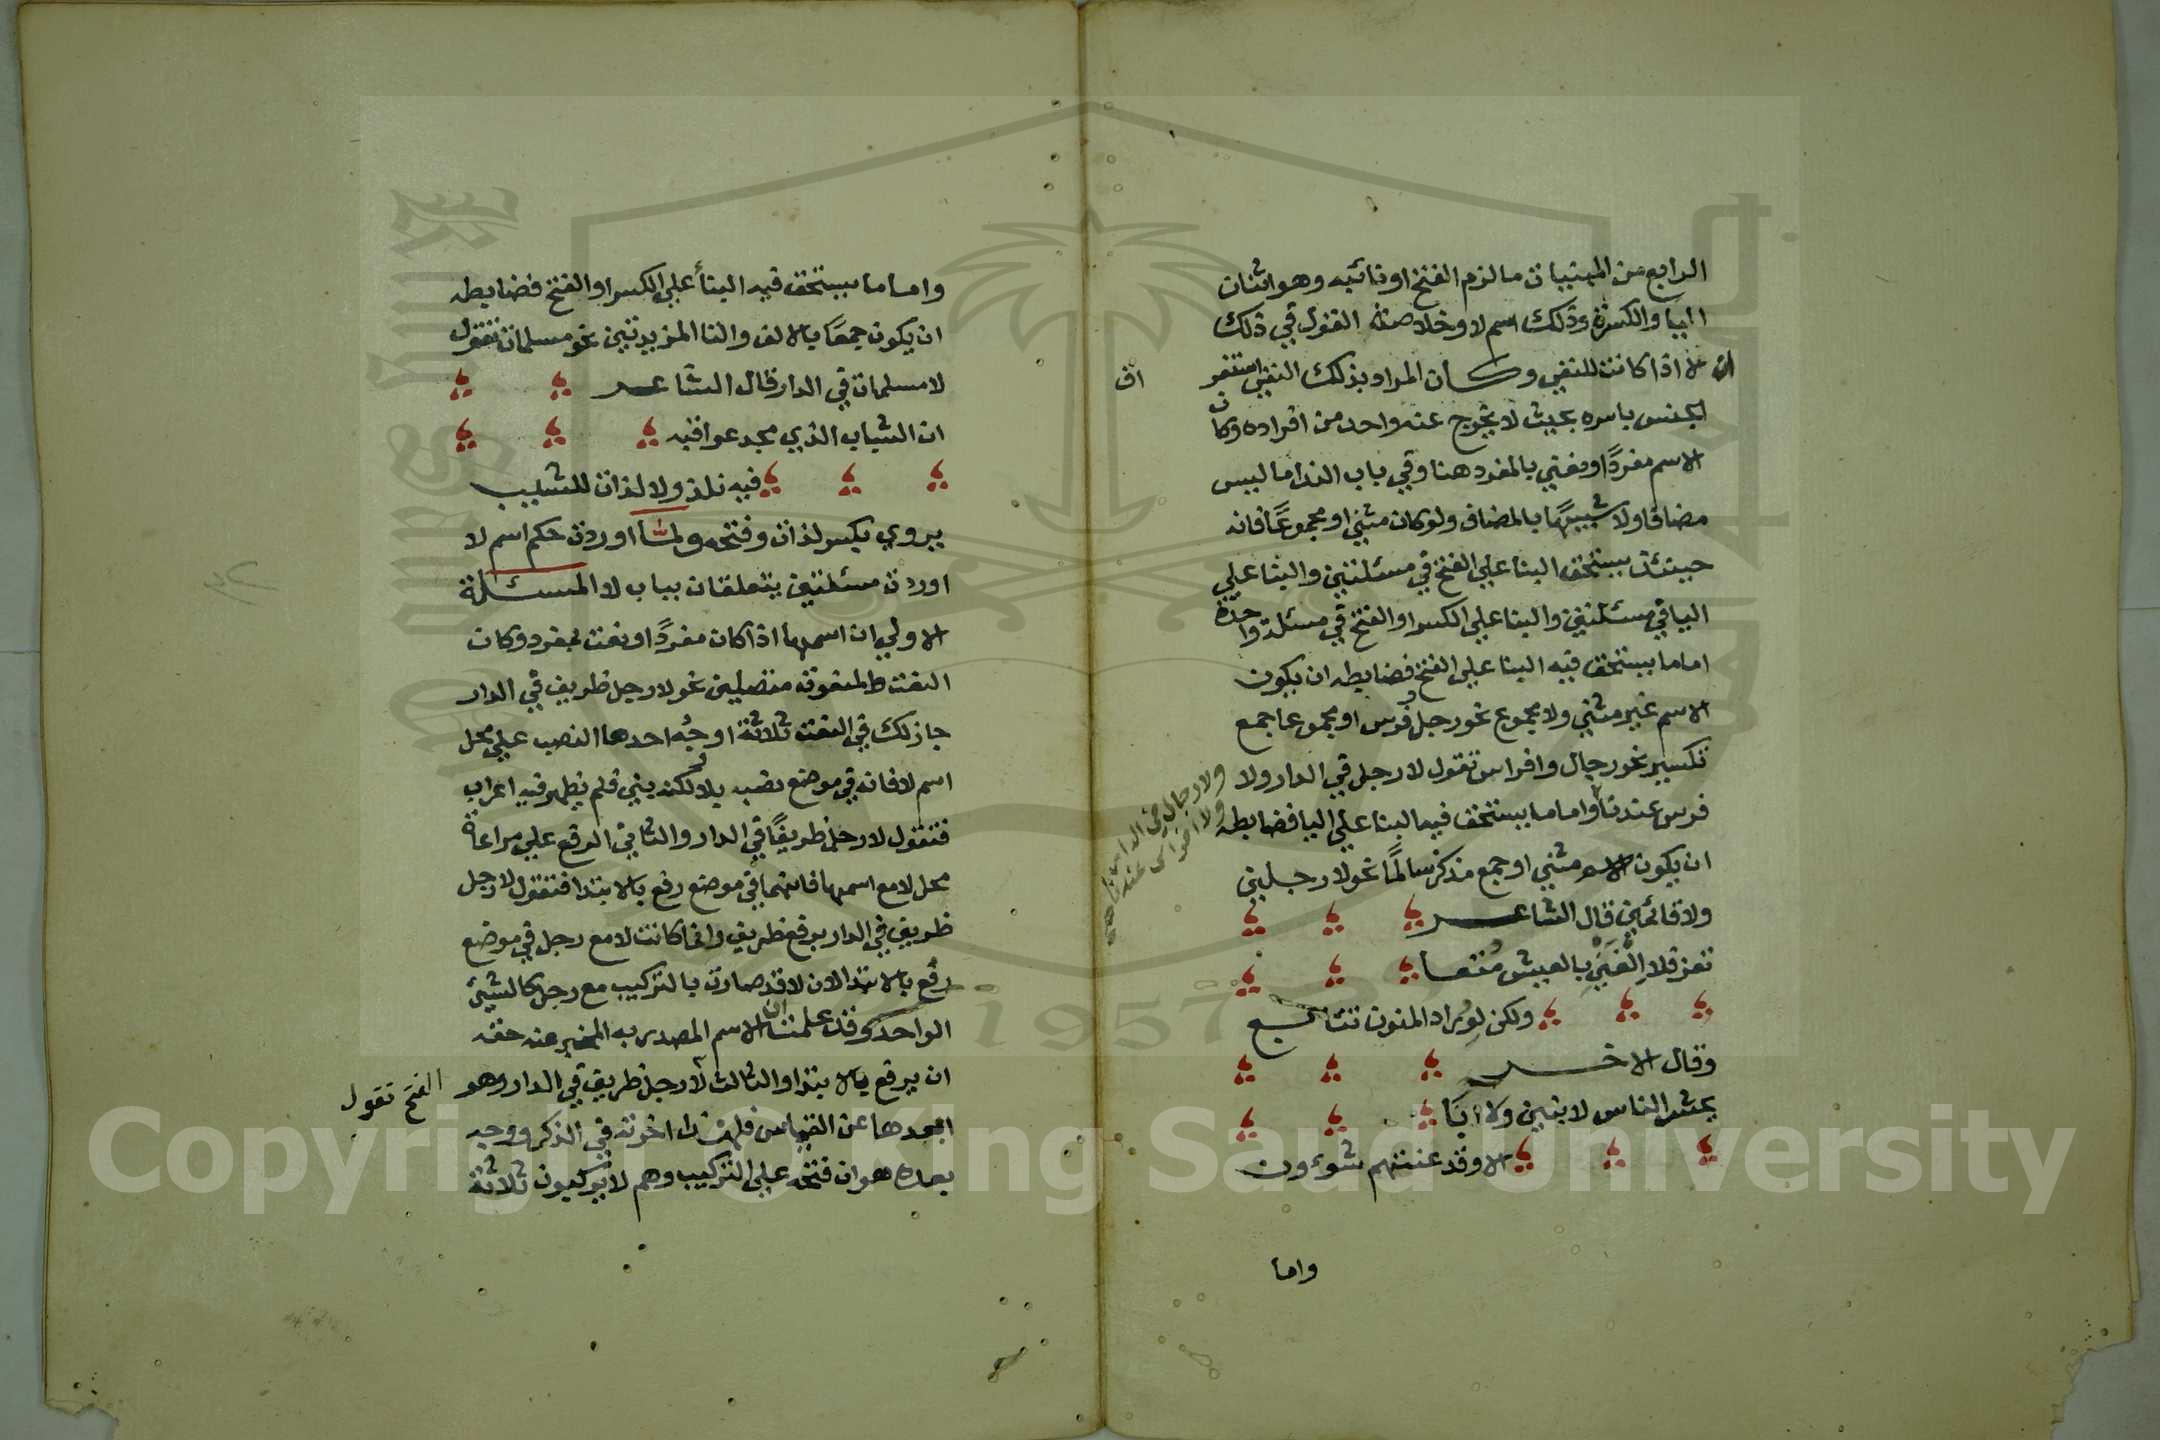 الرابع من المبنيات ما لزم الفتح او نائبه وهو اثنان
اليا والكسرة وذلك اسم لا وخلاصة القول في ذلك
ان لا اذا كانت للنفي وكان المراد بذلك النفي استغر
اق
الجنس باسره بحيث لا يخرج عنه واحد من افراده وكان
الاسم مفردًا ونعني بالمفرد هنا وفي باب الندا ما ليس
مضافا ولا شبيها بالمضاف ولو كان مثني او مجموعًا فانه
حينئذ يستحق البنا علي الفتح في مسئلتين والبنا علي
اليا في مسئلتين والبنا علي الكسر او الفتح في مسئلة واحدة
اما ما يستحق فيه البنا علي الفتح فضابطه ان يكون
الاسم غير مثني ولا مجموع نحو رجل وفرس او مجموعا جمع
تكسير نحو رجال وافراس تقول لا رجل في الدار ولا
ولا رجال في الدار
ولا افراس عندنا صح
فرس عندنا واما ما يستحق فيه البنا علي اليا فضابطه
ان يكون الاسم مثني او جمع مذكر سالمًا نحو لا رجلين
ولا قائمين قال الشاعر
تعز فلا الفين بالعيش متعا
ولكن لوراد المنون تتابع
وقال الاخر
يحشر الناس لا بنين ولا ابا
الا وقد عنتهم شوءون
واما
واما ما يستحق فيه البنأ علي الكسر او الفتح فضابطه
ان يكون جمعًا بالالف والتا المزيدتين نحو مسلمات تقول
لا مسلمات في الدار قال الشاعر
ان الشباب الذي مجد عواقبه
فيه نلذ ولا لذات للشيب
يروي بكسر لذات وفتحه ولما اوردت حكم اسم لا
اوردت مسئلتين يتعلقان بباب لا المسئلة
الاولي ان اسمها اذا كان مفردًا ونعت بمفرد وكان
النعت والمنعوت متصلين نحو لا رجل ظريف في الدار
جاز لك في النعت ثلاثة اوجه احدها النصب علي محل
اسم لا فانه في موضع نصب بلا ولكنه بني فلم يظهر فيه اعراب
فتقول لا رجل ظريفًا في الدار والثاني الرفع علي مراعاة
محل لا مع اسمها فانهما في موضع رفع بالابتدا فتقول لا رجل
ظريف في الدار برفع ظريف وانما كانت لا مع رجل في موضع
رفع بالابتدا لان لا قد صارت بالتركيب مع رجل كالشيئ
الواحد وقد علمت ان الاسم المصدر به المخبر عنه حقه
ان يرفع بالابتدا والثالث لا رجل ظريف في الدار وهو
الفتح تقول
ابعدها عن القياس فلهذا اخرته في الذكر ووجه
بعده هو ان فتحه علي التركيب وهم لا يركبون ثلاثة
Copyright © King Saud University
1957